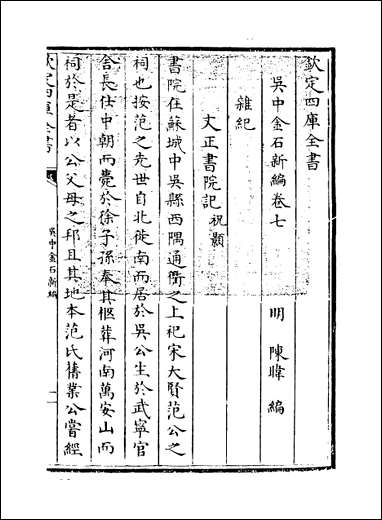 欽定四庫全書
吳中金石新編卷七
明 陳暐 編
雜紀
文正書院記 祝顥
書院在蘇城中吳縣西隅通衢之上祀宋大賢范公之
祠也按范之先世自北徙南而居於吳公生於武寧官
舍長仕中朝而薨於徐子孫奉其柩葬河南萬安山而
祠於是者以公父母之邦且其地本范氏舊業公嘗經
欽定四庫全書
吳中金石新編
一